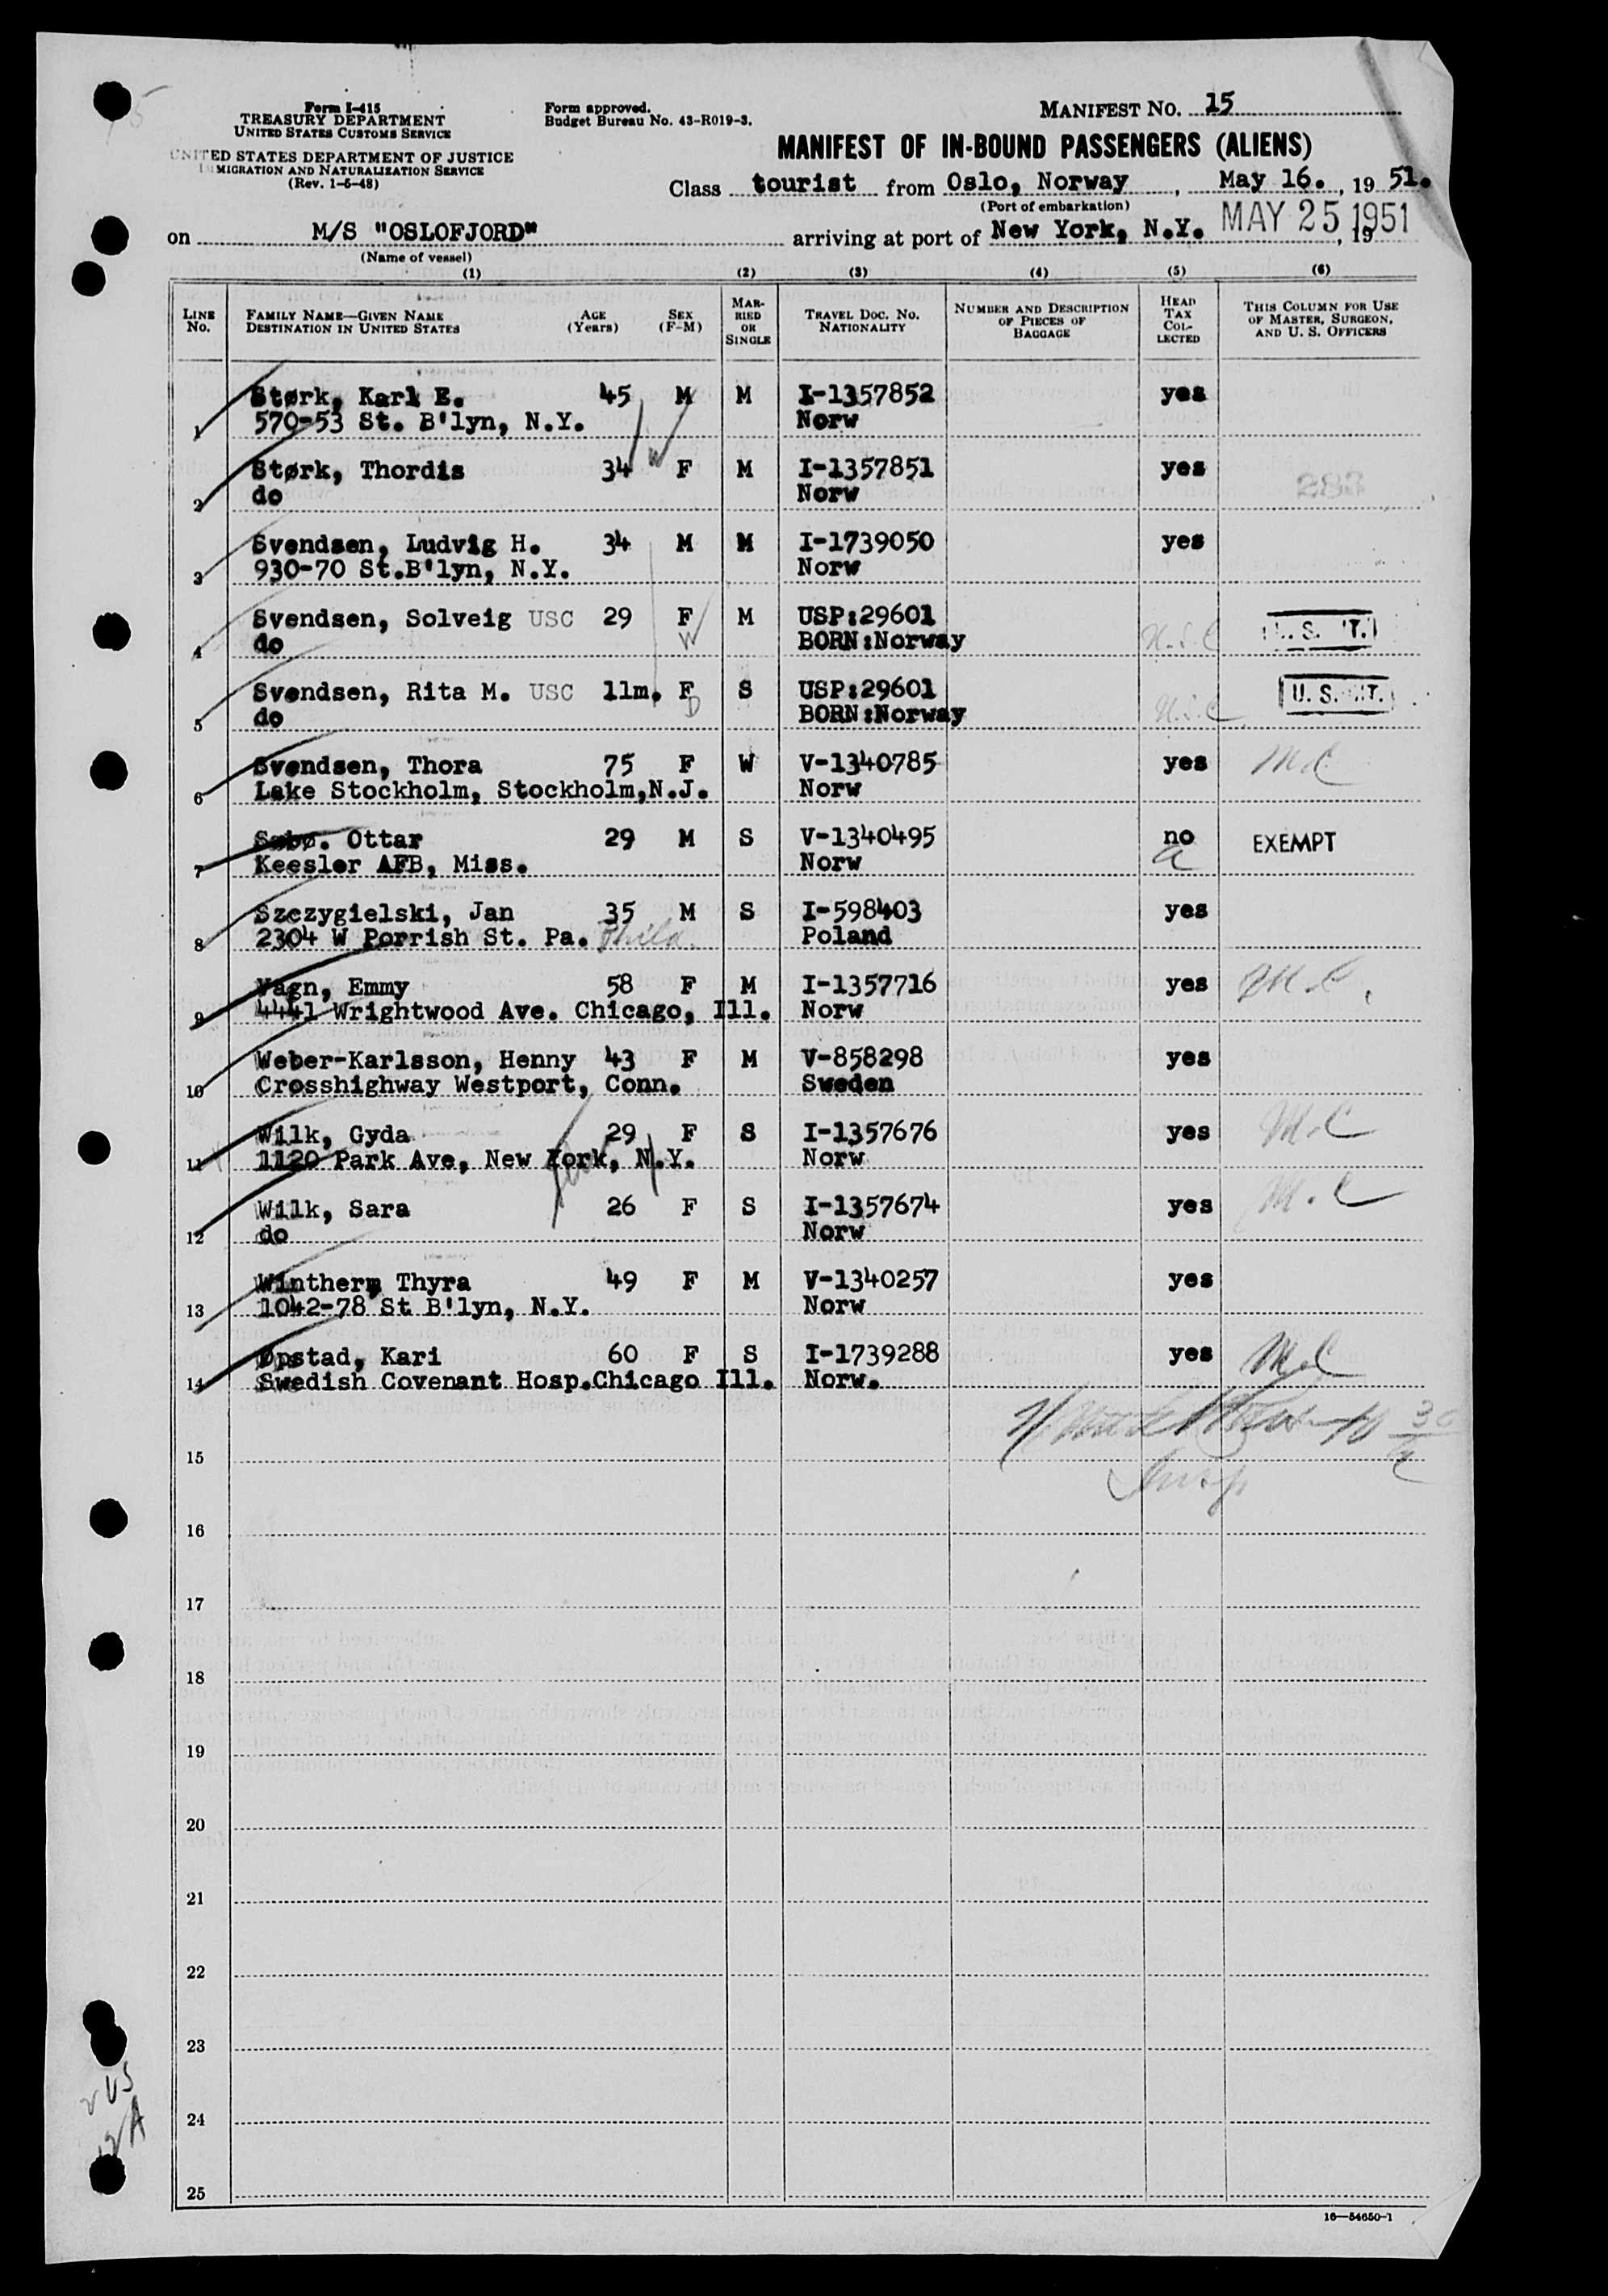 Form I-415
TREASURY DEPARTMENT
UNITED STATES CUSTOMS SERVICE
UNITED STATES DEPARTMENT OF JUSTICE
IMMIGRATION AND NATURALIZATION SERVICE
(Rev. 1-6-48)
Form approved.
Budget Bureau No. 43-R019-3.
MANIFEST NO. 15
MANIFEST OF IN-BOUND PASSENGERS (ALIENS)
Class tourist from Oslo, Norway, May 16., 19 51.
(Port of embarkation)
on M/S "OSLOFJORD" arriving at port of New York, N.Y. MAY 25 1951, 19
(Name of vessel)
(1) (2) (3) (4) (5) (6)
LINE No. FAMILY NAME—GIVEN NAME DESTINATION IN UNITED STATES AGE (Years) SEX (F-M) MARRIED OR SINGLE TRAVEL DOC. NO. NATIONALITY NUMBER AND DESCRIPTION OF PIECES OF BAGGAGE HEAD TAX COLLECTED THIS COLUMN FOR USE OF MASTER, SURGEON, AND U. S. OFFICERS
Størk, Karl E. 45 M M I-1357852 yes
1 570-53 St. B'lyn, N.Y. Norw
W
Størk, Thordis 34 F M I-1357851 yes
2 do Norw 283
Svendsen, Ludvig H. 34 M M I-1739050 yes
3 930-70 St.B'lyn, N.Y. Norw
Svendsen, Solveig USC 29 F M USP:29601
4 do W BORN:Norway U.S.C U. S. CIT.
Svendsen, Rita M. USC 11m. F S USP:29601 U. S. CIT.
5 do D BORN:Norway U.S.C
Svendsen, Thora 75 F W V-1340785 yes M C
6 Lake Stockholm, Stockholm,N.J. Norw
Sæbø. Ottar 29 M S V-1340495 no EXEMPT
7 Keesler AFB, Miss. Norw a
Szczygielski, Jan 35 M S I-598403 yes
8 2304 W Porrish St. Pa. Phila. Poland
Vagn, Emmy 58 F M I-1357716 yes M.C.
9 4441 Wrightwood Ave. Chicago, Ill. Norw
Weber-Karlsson, Henny 43 F M V-858298 yes
10 Crosshighway Westport, Conn. Sweden
Wilk, Gyda 29 F S I-1357676 yes M.C
11 1120 Park Ave, New York, N.Y. Norw
Wilk, Sara 26 F S I-1357674 yes M.C
12 do Norw
Winther, Thyra 49 F M V-1340257 yes
13 1042-78 St B'lyn, N.Y. Norw
Øpstad, Kari 60 F S I-1739288 yes M.C
14 Swedish Covenant Hosp.Chicago Ill. Norw.
15
Insp
16
17
18
19
20
21
22
23
24
25
2 US
12 A
16—54650-1